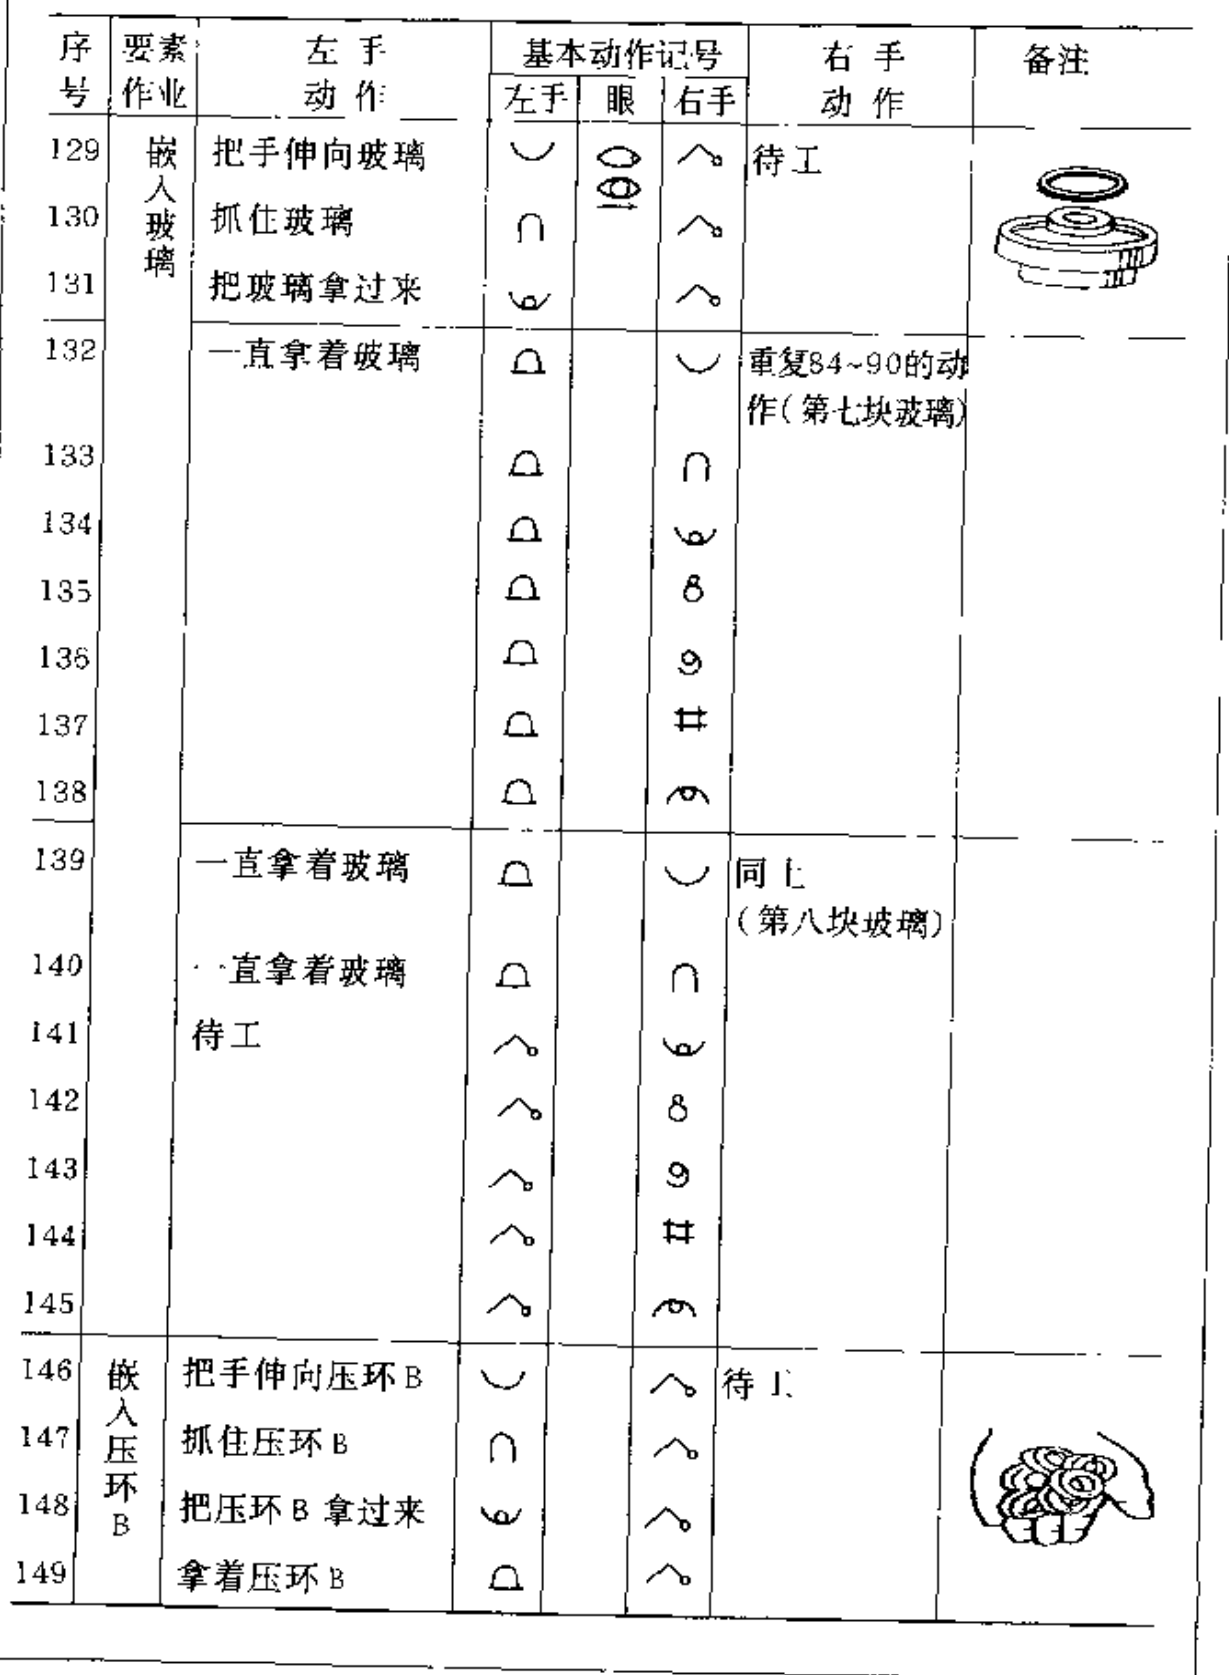 序号 要素作业 左手动作 基本动作记号 右手动作 备注
左手 眼 右手
129 嵌入玻璃 把手伸向玻璃 待工
130 抓住玻璃
131 把玻璃拿过来
132 一直拿着玻璃 重复84~90的动
作(第七块玻璃)
133
134
135
136
137
138
139 一直拿着玻璃 同上
(第八块玻璃)
140 一直拿着玻璃
141 待工
142
143
144
145
146 嵌入压环B 把手伸向压环B 待工
147 抓住压环B
148 把压环B拿过来
149 拿着压环B